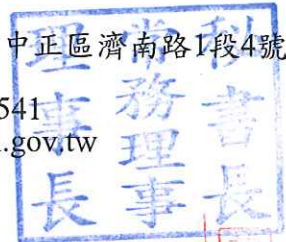 中正區濟南路1段4號
541
.gov.tw
理事長
常務理事
科書長